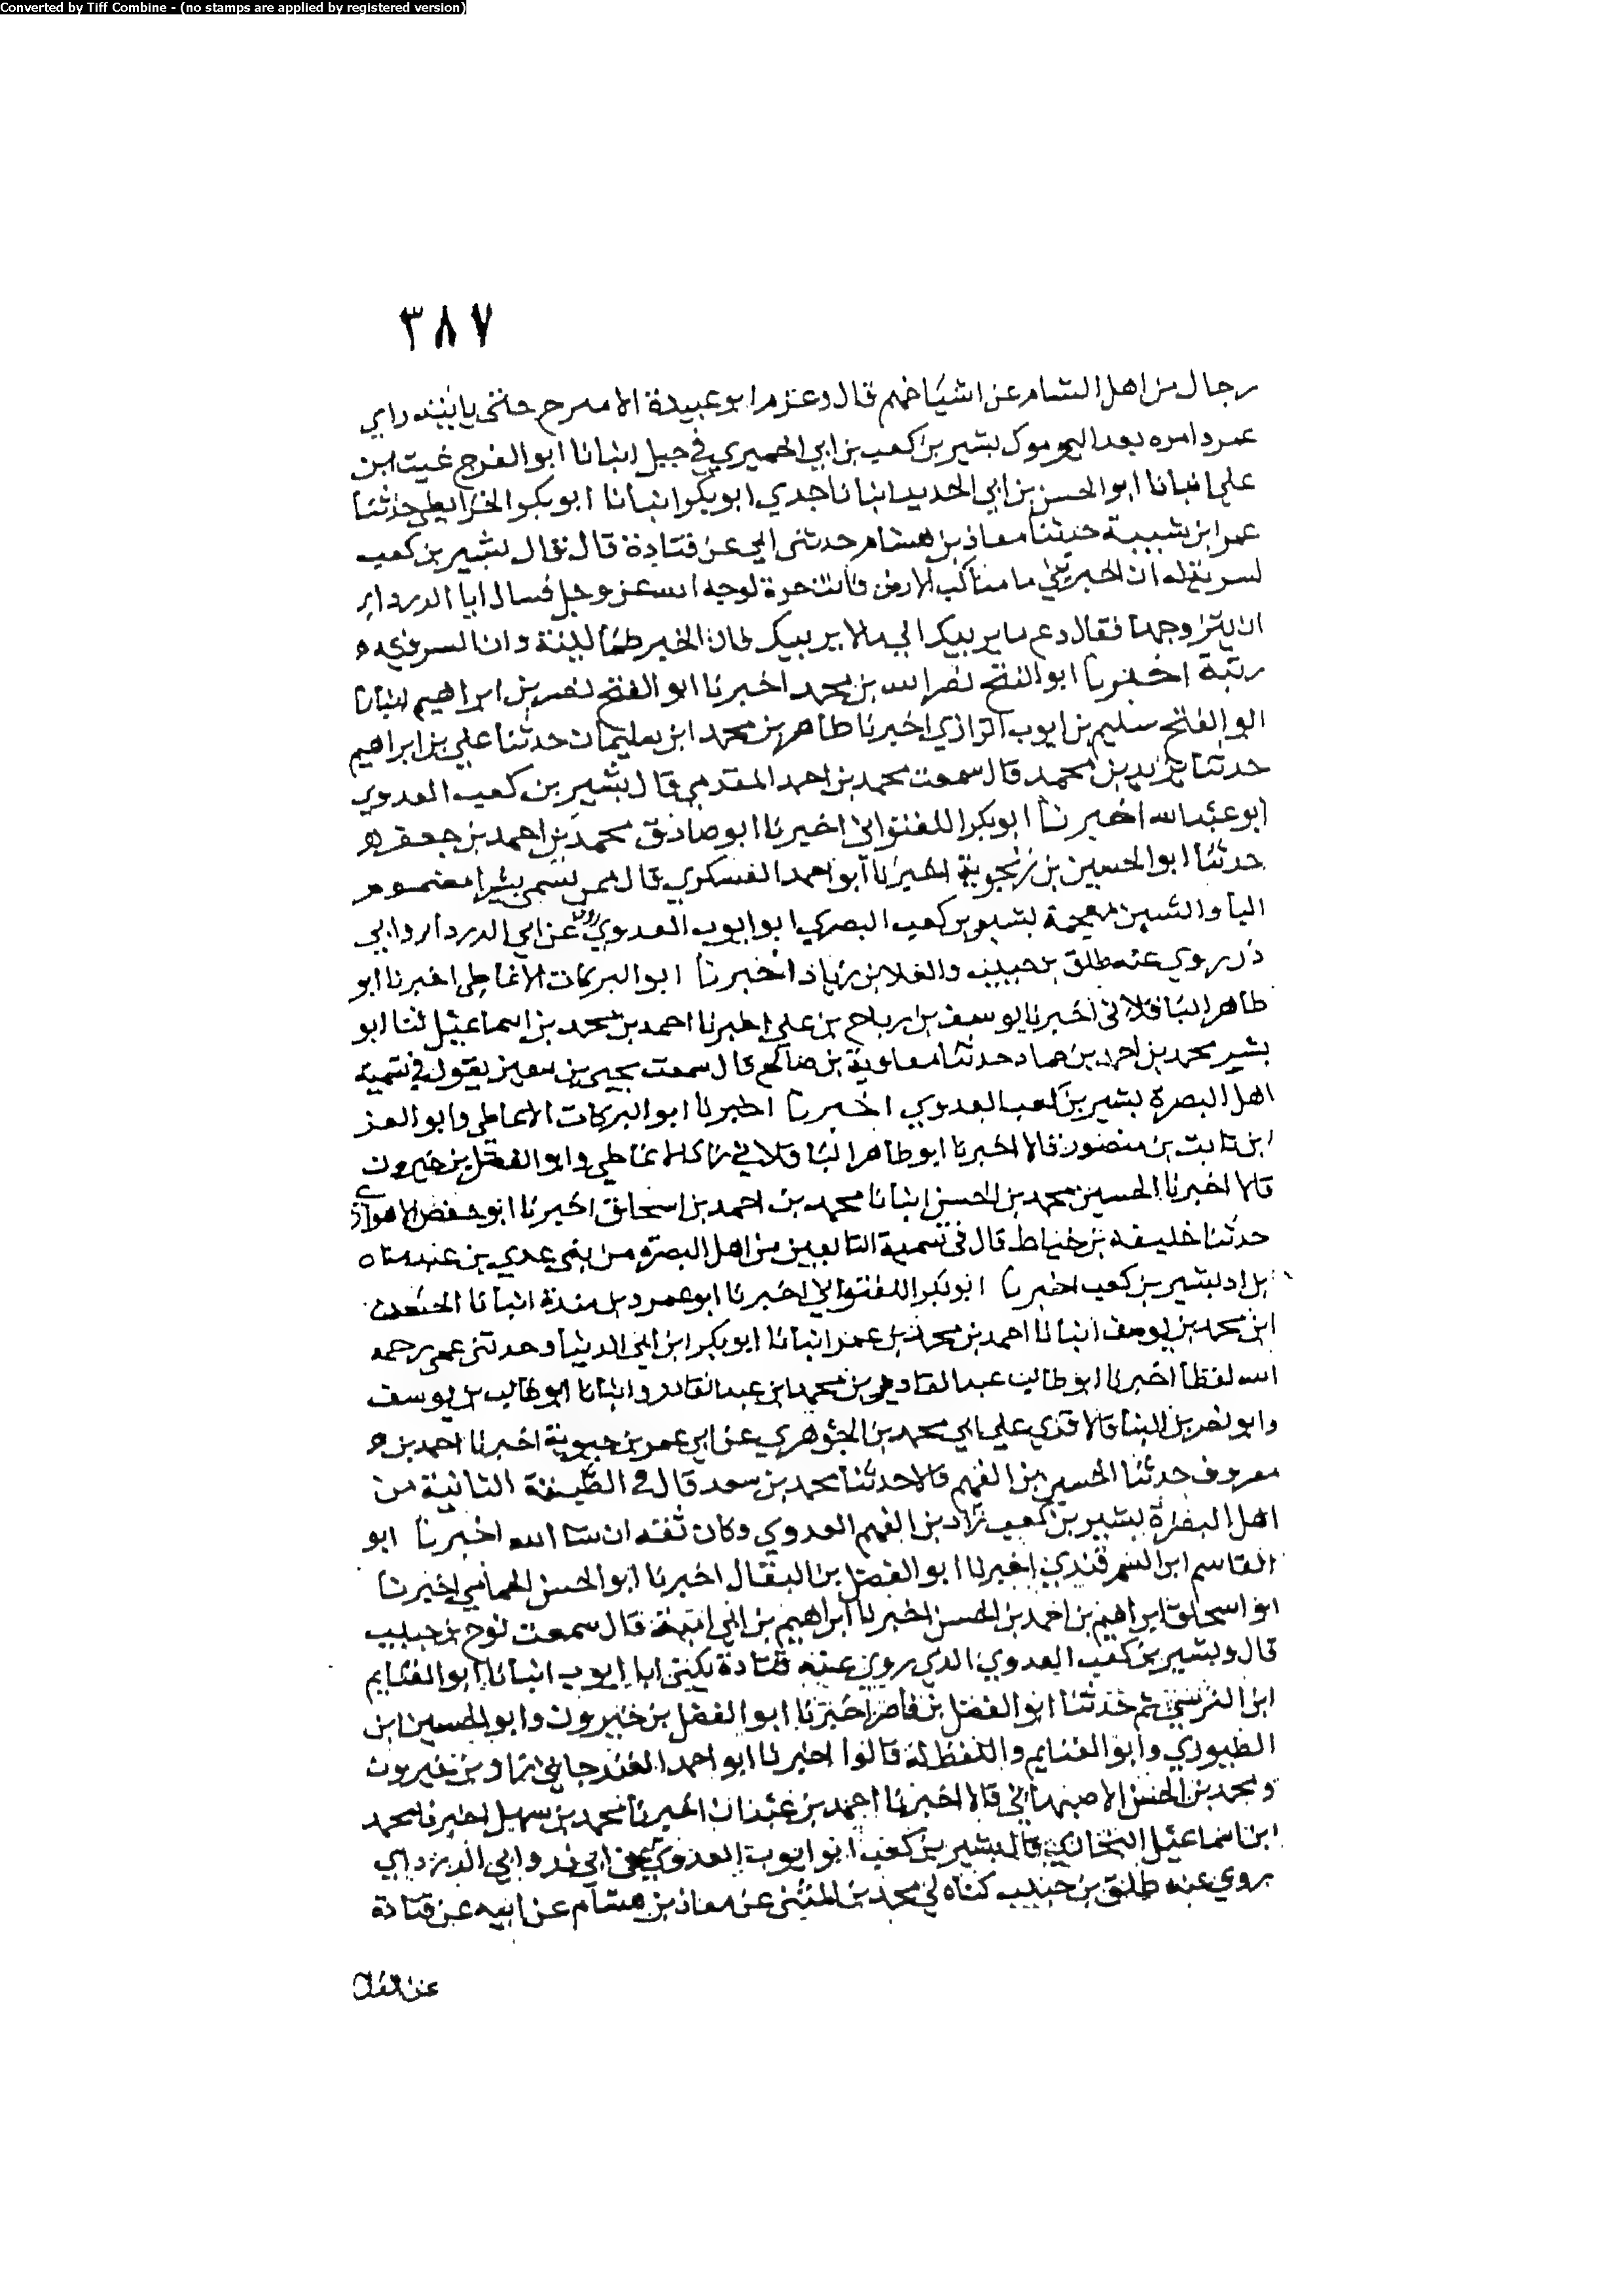 Converted by Tiff Combine - (no stamps are applied by registered version)
٣٨٧
رجال من اهل الشام عن اشياخهم قال وعزم ابو عبيدة الا مرح حتى يابينه راي
عمر وامره بعد اليرموك بشير بن كعب بن ابي الحميري في جبل انبانا ابو الفرج غيث ابن
علي انبانا ابو الحسن بن ابي الحديد انبانا جدي ابو بكر انبانا ابو بكر الخرايطي حدثنا
عمر ابن شيبة حدثنا معاذ بن هشام حدثني ابي عن قتادة قال قال بشير بن كعب
لسريته ان اخبرتني ما مناكب الارض فانت حرة لوجه الله عز وجل فسال ابا الدرداء
ان يتزوجها فقال دع ما يريبك الي ما لا يريبك فان الخير طمانينة وان الشر في
ريبة اخبرنا ابو الفتح نصر الله بن محمد اخبرنا ابو الفتح نصر بن ابراهيم انبانا
ابو الفتح سليم بن ايوب الرازي اخبرنا طاهر بن محمد ابن سليمان حدثنا علي بن ابراهيم
حدثنا يزيد بن محمد قال سمعت محمد بن احمد المقدمي قال بشير بن كعب العدوي
ابو عبد الله اخبرنا ابو بكر اللفتواني اخبرنا ابو صادق محمد بن احمد بن جعفر
حدثنا ابو الحسين بن زنجوية اخبرنا ابو احمد العسكري قال ممن يسمى بشيرا مضموم
اليا والشين معجمة بشير بن كعب البصري ابو ايوب العدوي روى عن ابي الدرداء وابي
ذر روي عنه طلق بن حبيب والعلا بن زياد اخبرنا ابو البركات الانماطي اخبرنا ابو
طاهر الباقلاني اخبرنا يوسف بن رباح بن علي اخبرنا احمد بن محمد بن اسماعيل ثنا ابو
بشير محمد بن احمد بن حماد حدثنا معاوية بن صالح قال سمعت يحيى بن معين يقول في تسمية
اهل البصرة بشير بن كعب العدوي اخبرنا اخبرنا ابو البركات الانماطي وابو العز
ابن ثابت بن منصور قالا اخبرنا ابو طاهر الباقلاني زاد الانماطي وابو الفضل بن خيرون
قالا اخبرنا الحسين محمد بن الحسن انبانا محمد بن احمد بن اسحاق اخبرنا ابو حفص الاهوازي
حدثنا خليفه بن خياط قال في تسمية التابعين من اهل البصره من بني عدي بن عبد مناه
بن اد بشير بن كعب اخبرنا ابو بكر اللفتواني اخبرنا ابو عمرو بن مندة انبانا الحسن
ابن محمد بن يوسف انبانا احمد بن محمد بن عمر انبانا ابو بكر ابن ابي الدنيا وحدثني عمي رحمه
الله لفظا اخبرنا ابو طالب عبد القادر بن محمد ابن عبد القادر وانبانا ابو طالب بن يوسف
وابو نصر بن البنا قالا قري علي ابي محمد بن الجوهري عن ابي عمر بن حيوية اخبرنا احمد بن
معروف حدثنا الحسين بن الفهم قالا حدثنا محمد بن سعد قال في الطبقة الثانية من
اهل البصرة بشير بن كعب زاد بن الفهم العدوي وكان ثقه ان شا الله اخبرنا ابو
القاسم ابن السمرقندي اخبرنا ابو الفضل بن البقال اخبرنا ابو الحسن الحمامي اخبرنا
ابو اسحاق ابراهيم بن احمد بن الحسن اخبرنا ابراهيم بن ابي امية قال سمعت نوح بن حبيب
قال وبشير بن كعب العدوي الذي روي عنه قتادة يكنى ابا ايوب انبانا ابو الغنايم
ابن النرسي ثم حدثنا ابو الفضل بن ناصر اخبرنا ابو الفضل بن خيرون وابو الحسين ابن
الطيوري وابو الغنايم واللفظ له قالوا اخبرنا ابو احمد الغندجاني زاد بن خيرون
ومحمد بن الحسن الاصبهاني قالا اخبرنا احمد بن عبدان اخبرنا محمد بن سهيل اخبرنا محمد
ابن اسماعيل البخاري قال بشير بن كعب ابو ايوب العدوي عن ابي ذر وابي الدرداي
روي عنه طلق بن حبيب كناه لي محمد بن المثنى عن معاذ بن هشام عن ابيه عن قتادة
عن العلا